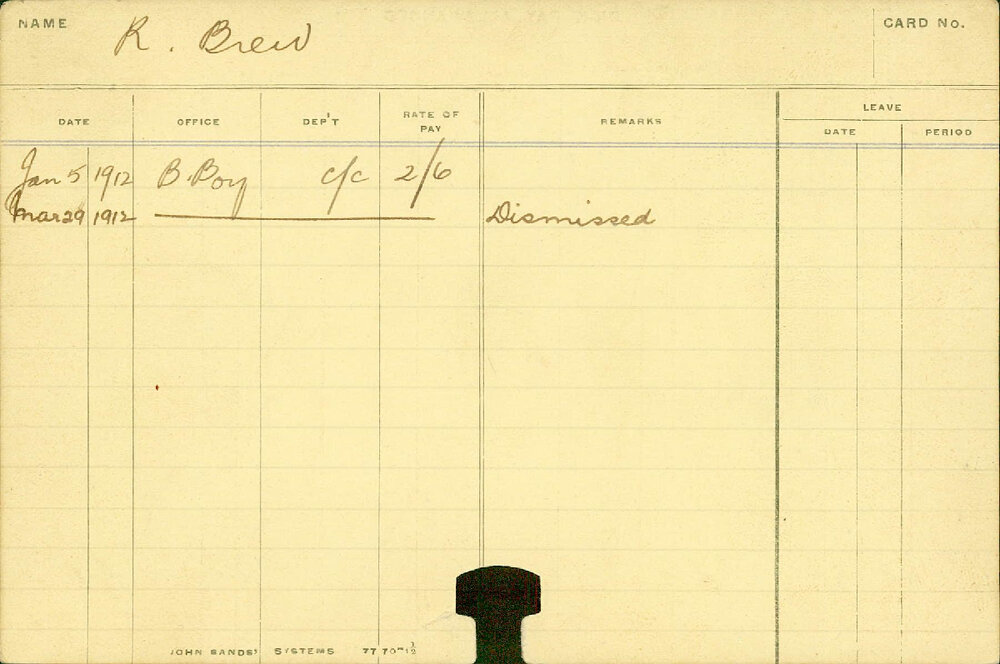 NAME R. Brew CARD No.
LEAVE
DATE OFFICE DEP'T RATE OF PAY REMARKS DATE PERIOD
Jan 5 1912 B. Boy c/c 2/6
Mar 29 1912 Dismissed
JOHN SANDS' SYSTEMS